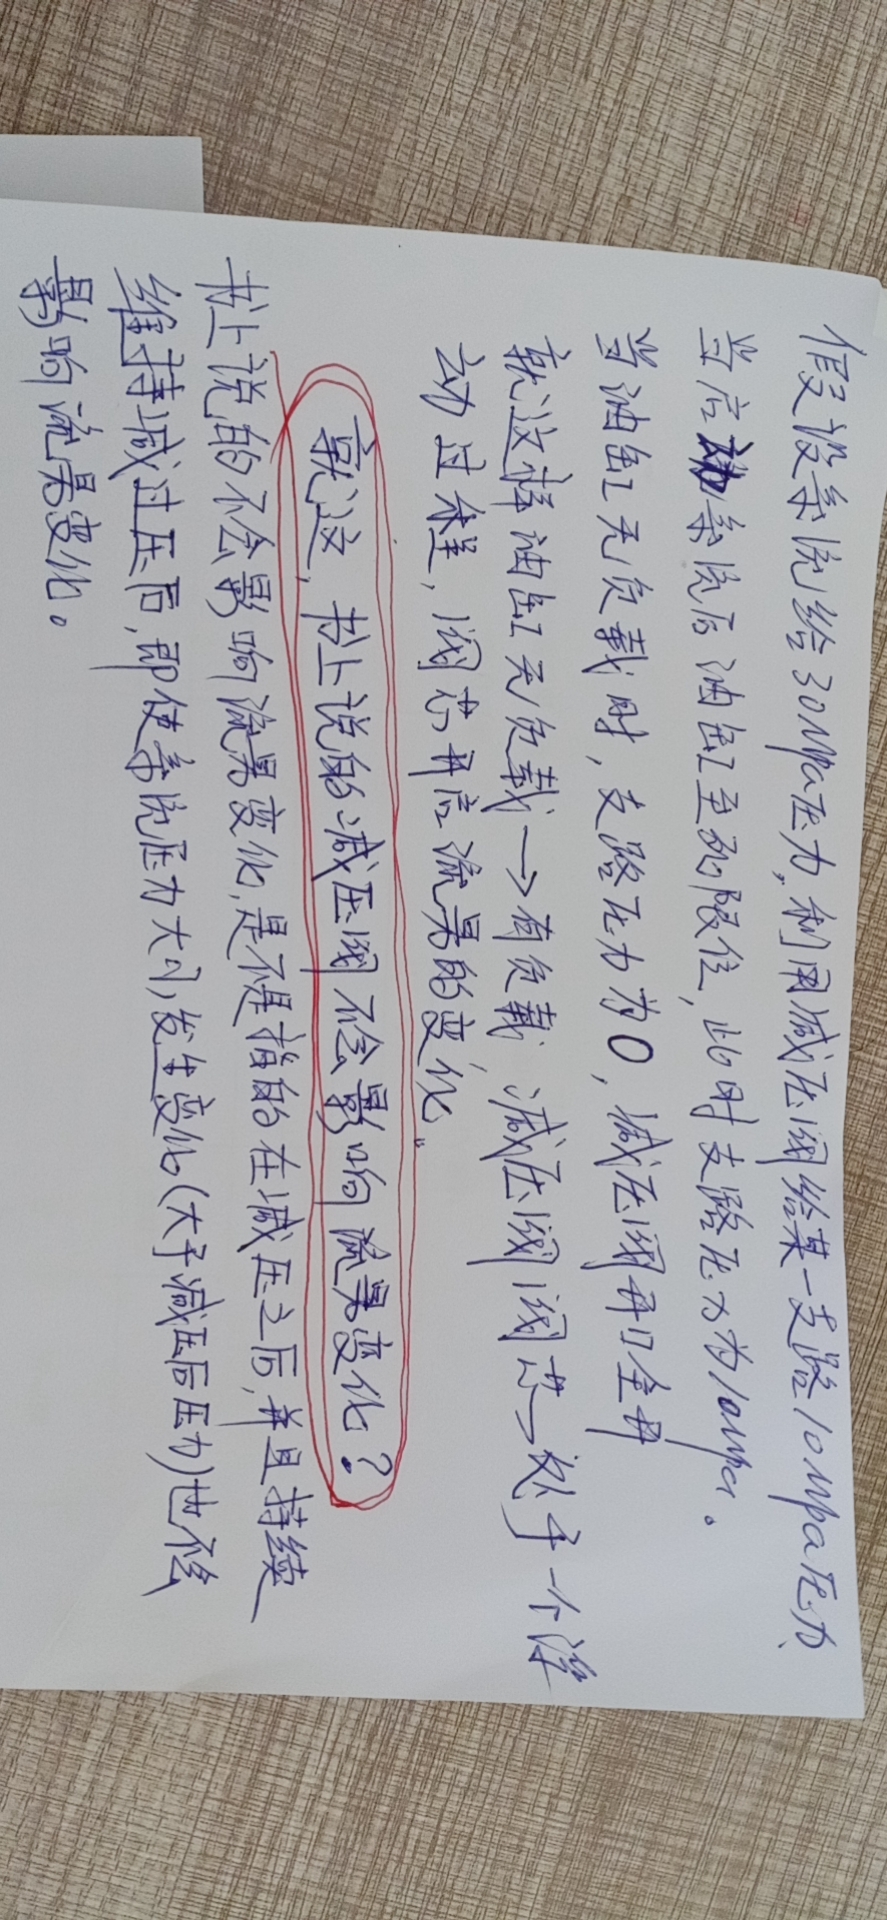 假设系统给30Mpa压力,利用减压阀给某一支路10Mpa压力、
当启动系统后油缸至死限位,此时支路压力为10Mpa。
当油缸无负载时,支路压力为0,减压阀开口全开
就这样油缸无负载→有负载,减压阀阀芯→处于一个浮
动过程,阀芯开启流量的变化。
就这,书上说的减压阀不会影响流量变化?
书上说的不会影响流量变化,是不是指的在减压之后,并且持续
维持减过压后,即使系统压力大小,发生变化(大于减压后压力)也不会
影响流量变化。